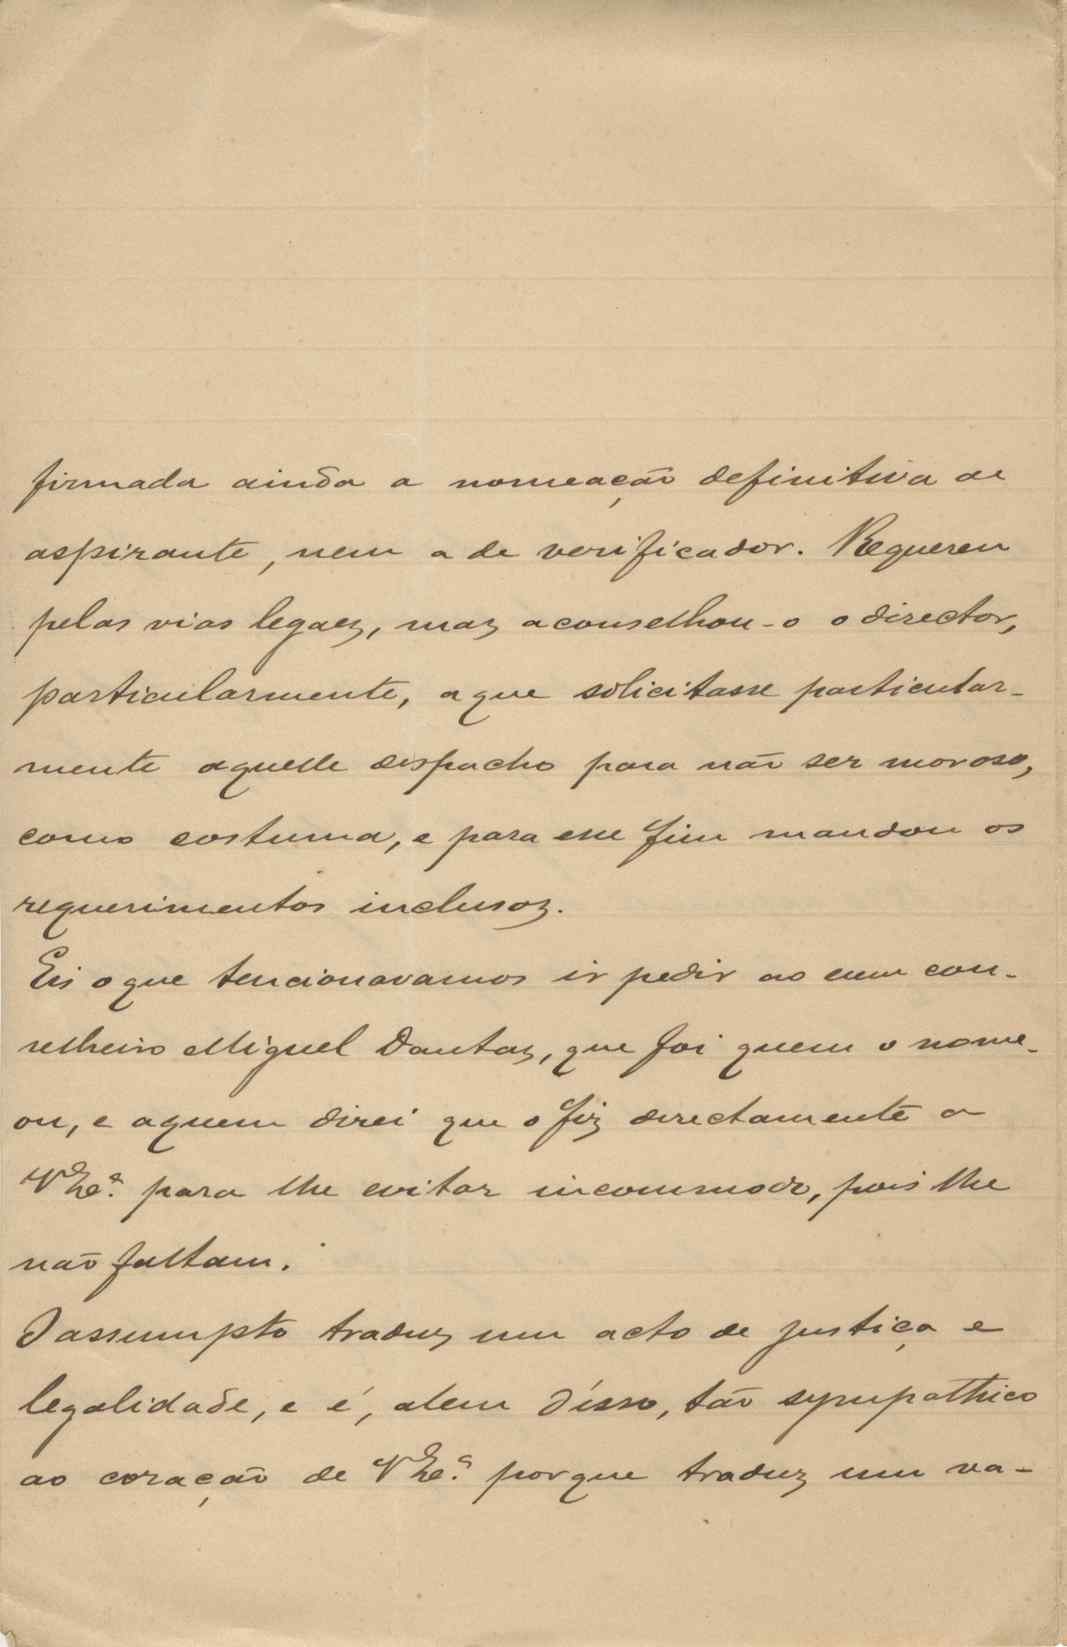 firmada ainda a nomeação definitiva de
aspirante, nem a de verificador. Requereu
pelas vias legaes, mas aconselhou-o o director,
particularmente, a que solicitasse particular-
mente aquelle despacho para não ser moroso,
como costuma, e para esse fim mandou os
requerimentos inclusos.
Eis o que tencionavamos ir pedir ao con-
selheiro Miguel Dantas, que foi quem o nome-
ou, e a quem direi que o fiz directamente a
V Exª. para lhe evitar incommodo, pois lhe
não faltam.
O assumpto traduz um acto de justiça e
legalidade, e é, alem d'isso, tão sympathico
ao coração de V Exª. porque traduz um va-